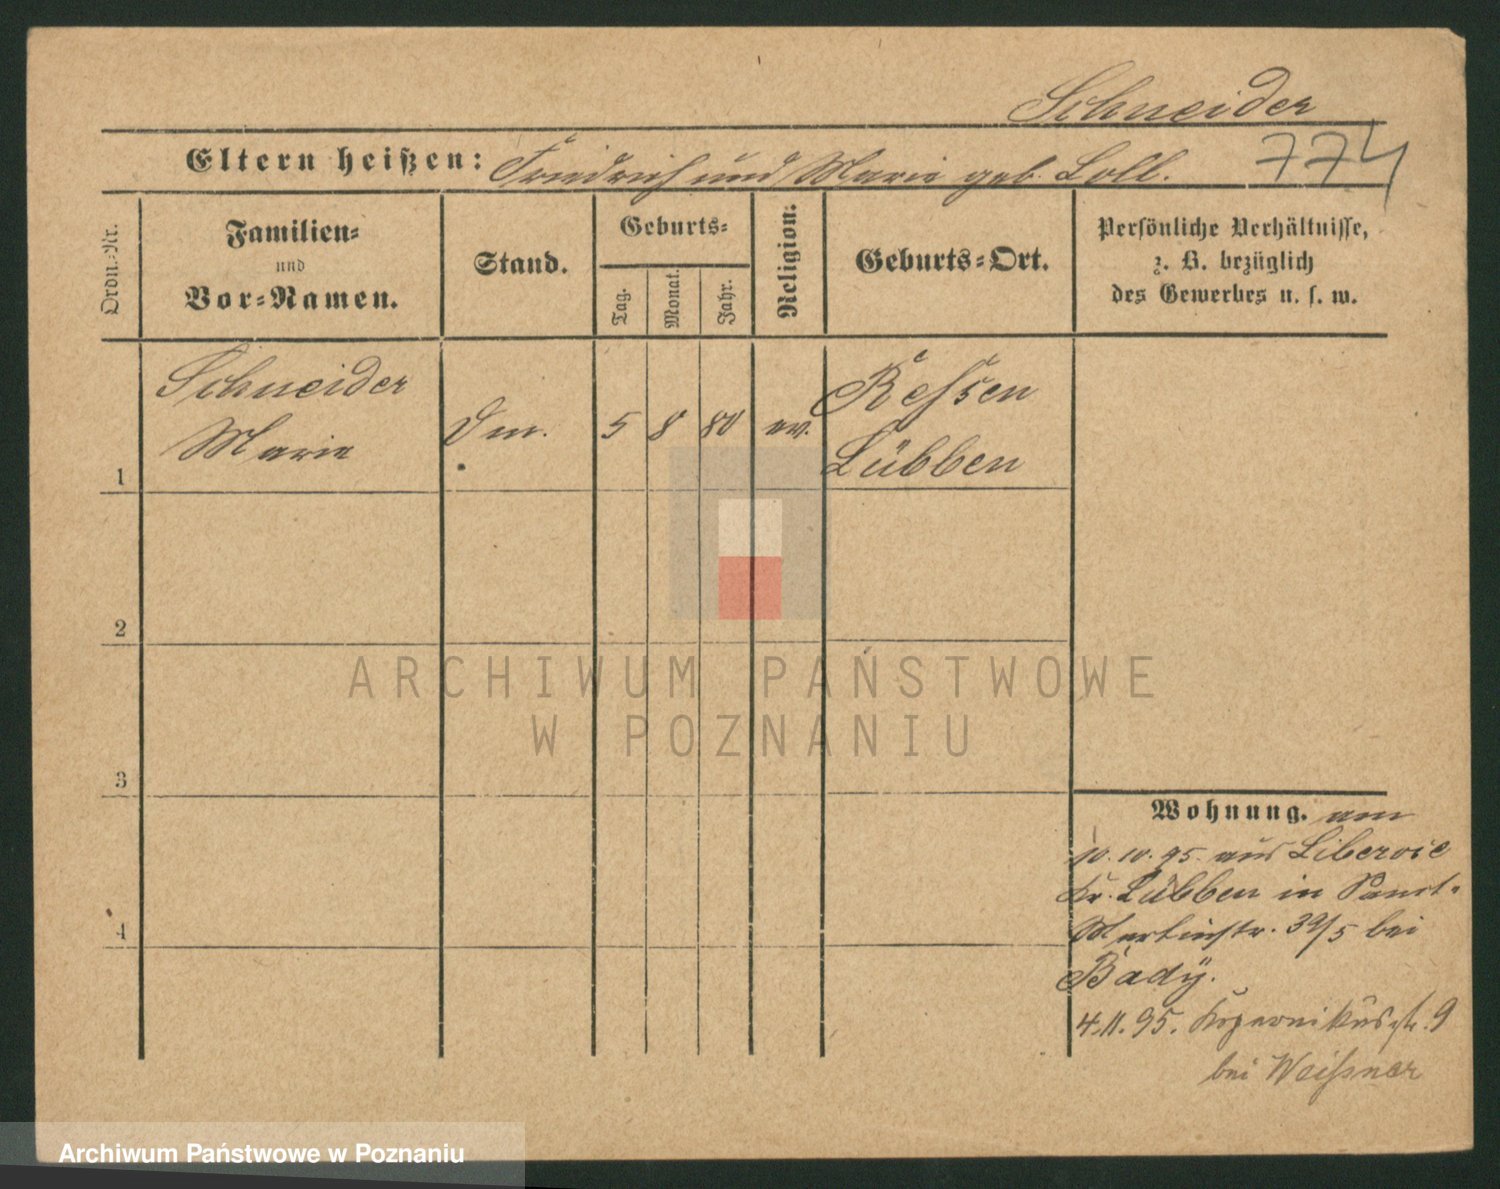 Schneider
Eltern heißen: Friedrich und Marie geb. Loll.
774
Ordn.-Nr.
Familien-
und
Vor-Namen.
Stand.
Geburts-
Tag.
Monat.
Jahr.
Religion.
Geburts-Ort.
Persönliche Verhältnisse,
z. B. bezüglich
des Gewerbes u. s. w.
Schneider
Marie
1
5 8 80 ev.
Lübben
2
ARCHIWUM PAŃSTWOWE
W POZNANIU
3
4
Wohnung. am
10.10.95. aus
Kr. Lübben in Sanct-
Martinstr. 39/5 bei
Bady.
4.11.95. Kopernikusstr. 9
bei Weißner
Archiwum Państwowe w Poznaniu